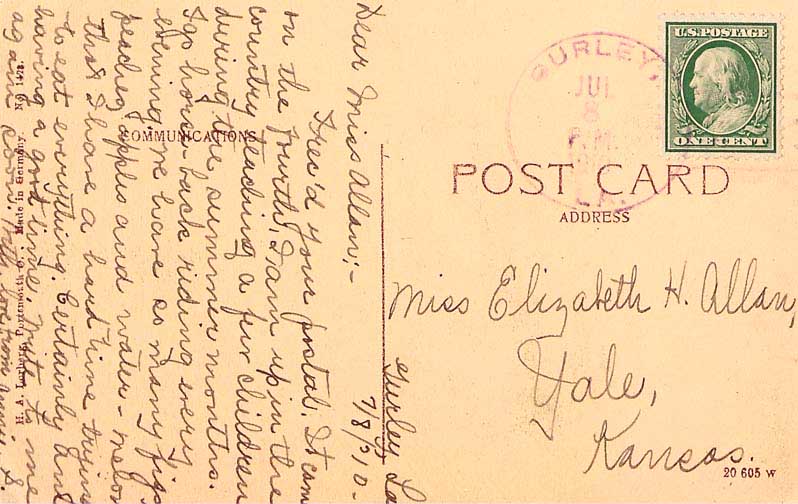 Gurley La
7/8/10-
Dear Miss Allan:-
I rec'd your postal. It came
on the Fourth. I am up in the
country teaching a few children
during the summer months.
I go horse-back riding every
evening. We have so many figs
peaches, apples and water-melons
that I have a hard time trying
to eat everything. Certainly am
having a good time. Write to me
again soon. With love from Annie S.
COMMUNICATIONS
H. A. Lorberg, Portsmouth O., Made in Germany. No. 1478.
GURLEY,
JUL
8
P.M.
LA.
U.S. POSTAGE
ONE CENT
POST CARD
ADDRESS
Miss Elizabeth H. Allan,
Yale,
Kansas.
20 605 W